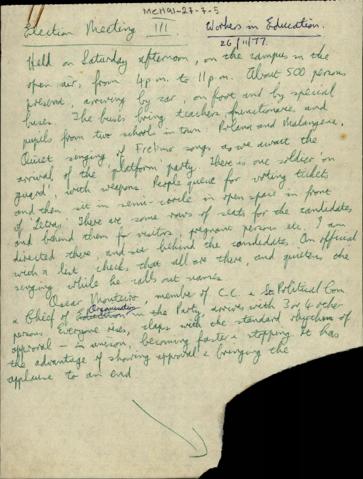 MCH91-27-7-5
Election Meeting III
Workers in Education.
26/11/77
Held on Saturday afternoon, on the campus in the
open air, from 4 p.m. to 11 p.m. About 500 persons
present, arriving by car, on foot and by special
buses. The buses bring teachers, functionaries, and
pupils from two schools in town: Polana and Malangene.
Quiet singing of Frelimo songs as we await the
arrival of the 'platform party'. There is one soldier on
guard, with weapons. People queue for voting tickets
and then sit in semi-circle in open space in front
of Letras. There are some rows of seats for the candidates,
and behind them for visitors, pregnant persons etc. I am
directed there, and sit behind the candidates. An official
with a list, checks that all are there, and quietens the
singing while he calls out names.
Oscar Monteiro, member of C.C. & Political Com
& Chief of Organisation in the Party, arrives with 3 or 4 other
persons. Everyone rises, claps with the standard rhythm of
approval — in unison, becoming faster & stopping. It has
the advantage of showing approval & bringing the
applause to an end